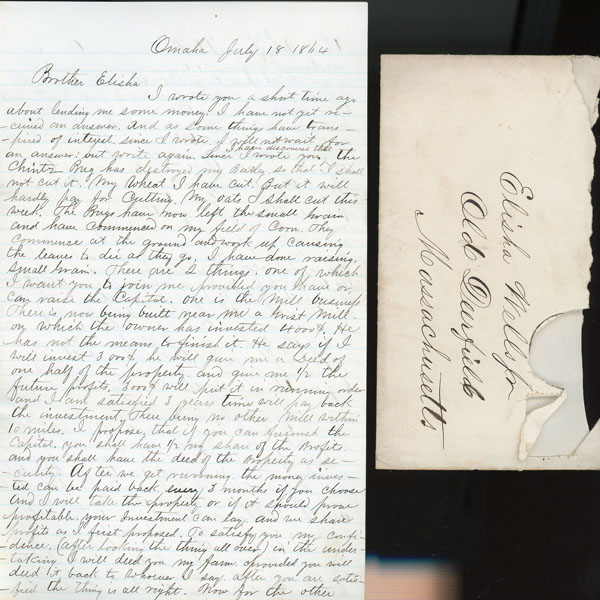 Omaha July 18 1864
Brother Elisha
I wrote you a short time ago
about lending me some money. I have not yet re-
-ceived an answer. And as some things have trans-
-pired of interest, since I wrote, I will not wait for
an answer; but write again. Since I wrote you I have discovered that the
Chintz Bug has destroyed my Barley so that I shall
not cut it. My Wheat I have cut. But it will
hardly pay for Cutting. My Oats I shall cut this
week. The Bugs have now left the small grain
and have commenced on my field of Corn. They
commence at the ground and work up causing
the leaves to die as they go. I have done raising
small Grain. There are 2 things, one of which
I want you to join me provided you have or
can raise the Capital. One is the Mill business
There is now being built near me a Grist Mill.
on which the owner has invested 4000$. He
has not the means to finish it. He says if I
will invest 3000$ he will give me a Deed of
one half of the property. and give me 1/2 the
future profits. 3000$ will put it in running order
and I am satisfied 3 years time will pay back
the investment, There being no other Mill within
10 miles. I propose, that if you can furnish the
Capital. you shall have 1/2 my share of the Profits.
and you shall have the deed of the Property as se-
-curity. After we get running the money inves-
-ted can be paid back every 3 months if you choose
and I will take the property. or if it should prove
profitable. your Investment can lay. and we share
profits as I first proposed. To satisfy you my confi-
-dence. (after looking the thing all over) in the under-
-taking. I will deed you my farm. provided you will
deed it back to whoever I say. after you are satis-
-fied the thing is all right. Now for the other
Elisha Wells Jr
Old Deerfield
Massachusetts